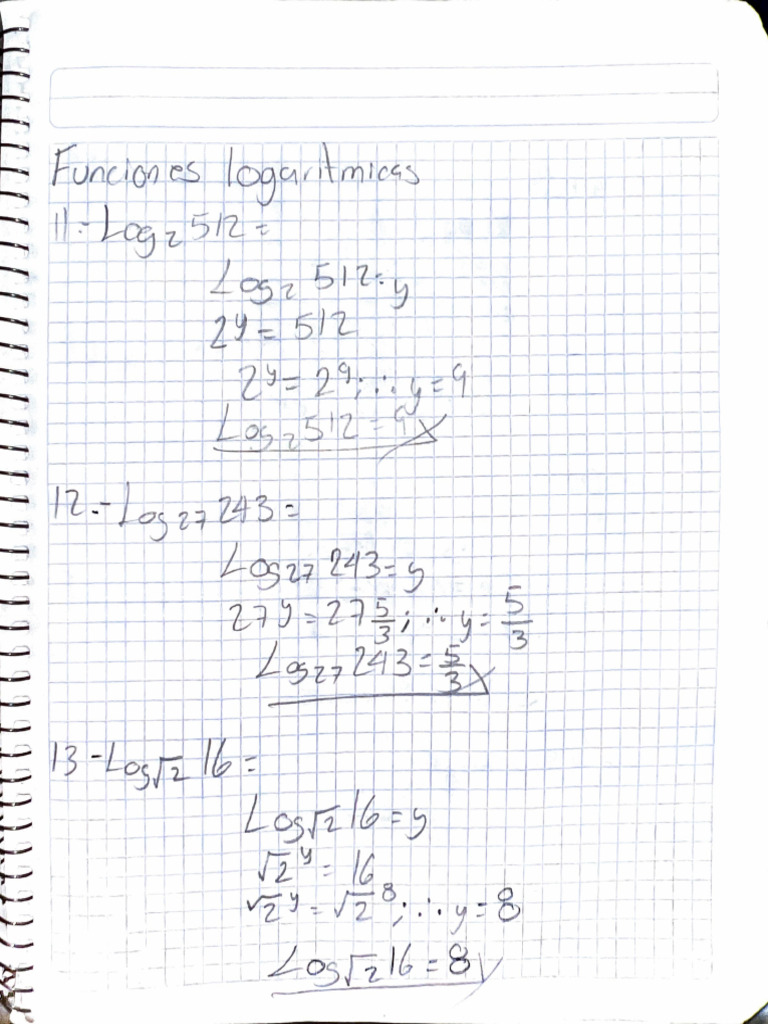 Funciones logaritmicas
11.- Log₂ 512 =
Log₂ 512 = y
2ʸ = 512
2ʸ = 2⁹; ∴ y = 9
Log₂ 512 = 9
12.- Log₂₇ 243 =
Log₂₇ 243 = y
27ʸ = 27 5/3; ∴ y = 5/3
Log₂₇ 243 = 5/3
13 - Log√2 16 =
Log√2 16 = y
√2ʸ = 16
√2ʸ = √2⁸; ∴ y = 8
Log√2 16 = 8